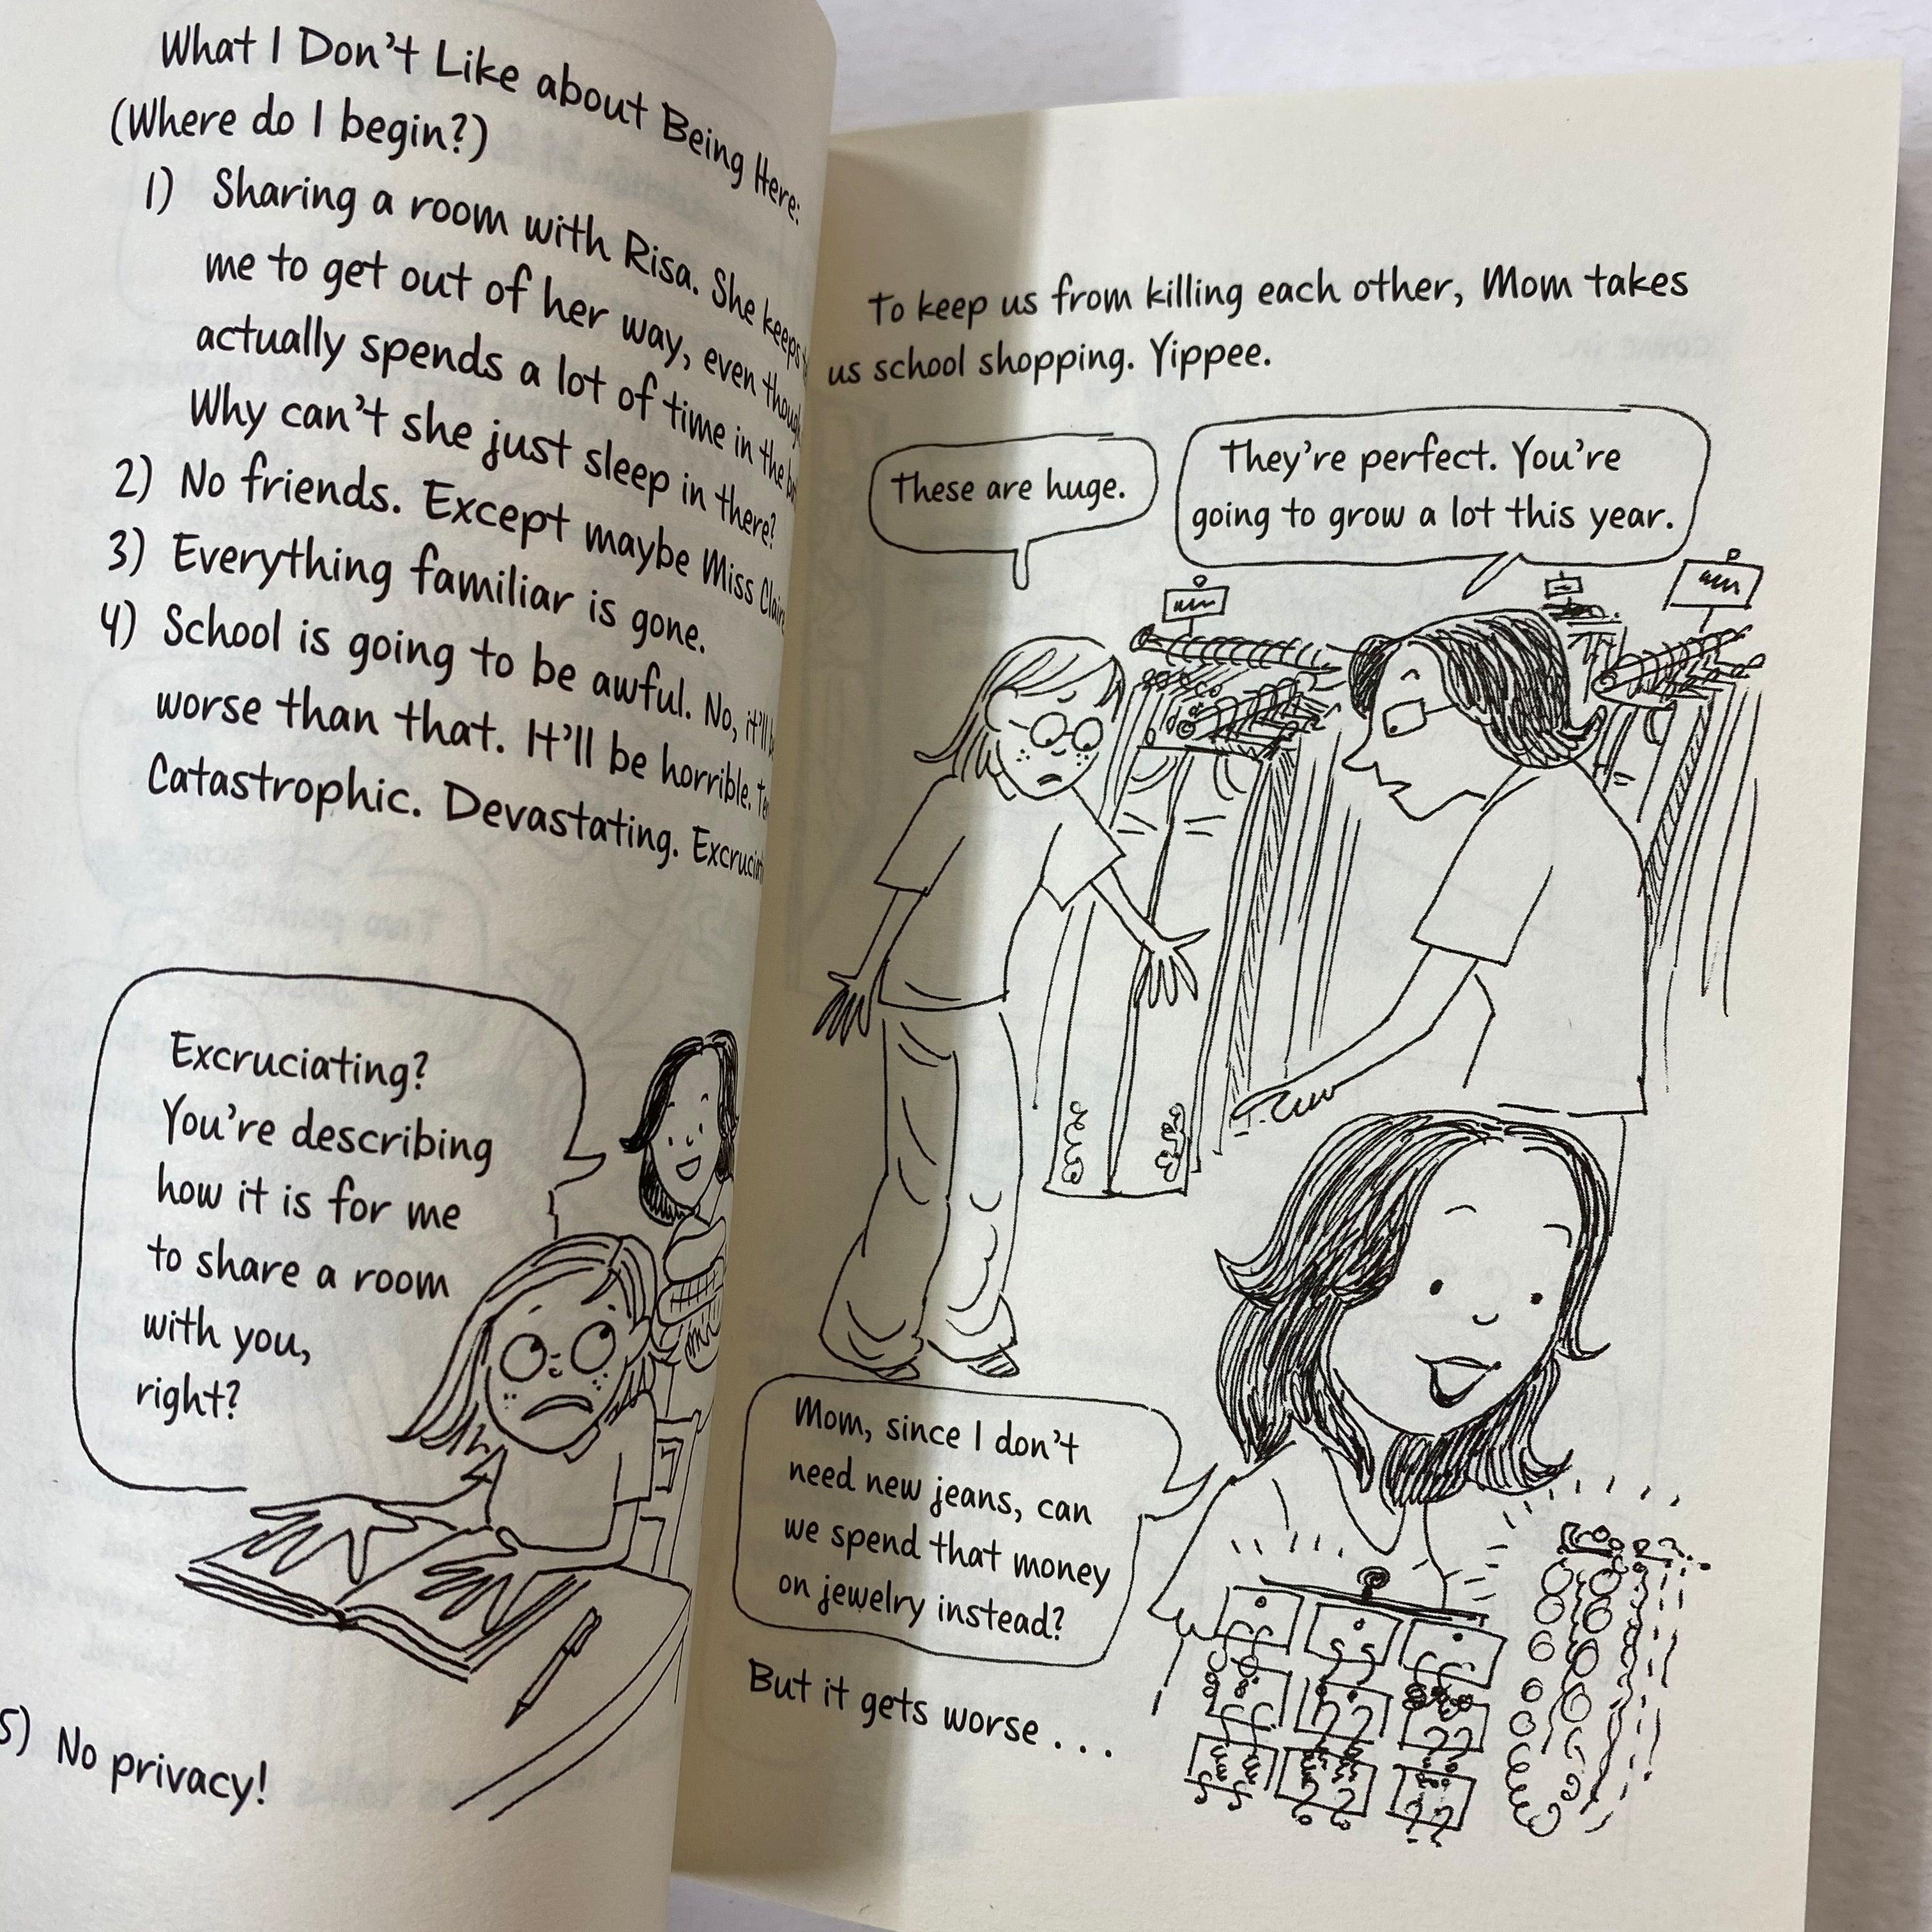 What I Don't Like about Being Here:
(Where do I begin?)
1) Sharing a room with Risa. She keeps
me to get out of her way, even though
actually spends a lot of time in the
Why can't she just sleep in there?
2) No friends. Except maybe Miss
3) Everything familiar is gone.
4) School is going to be awful. No, it'll
worse than that. It'll be horrible.
Catastrophic. Devastating.
Excruciating?
You're describing
how it is for me
to share a room
with you,
right?
5) No privacy!
To keep us from killing each other, Mom takes
us school shopping. Yippee.
These are huge.
They're perfect. You're
going to grow a lot this year.
Mom, since I don't
need new jeans, can
we spend that money
on jewelry instead?
But it gets worse . . .